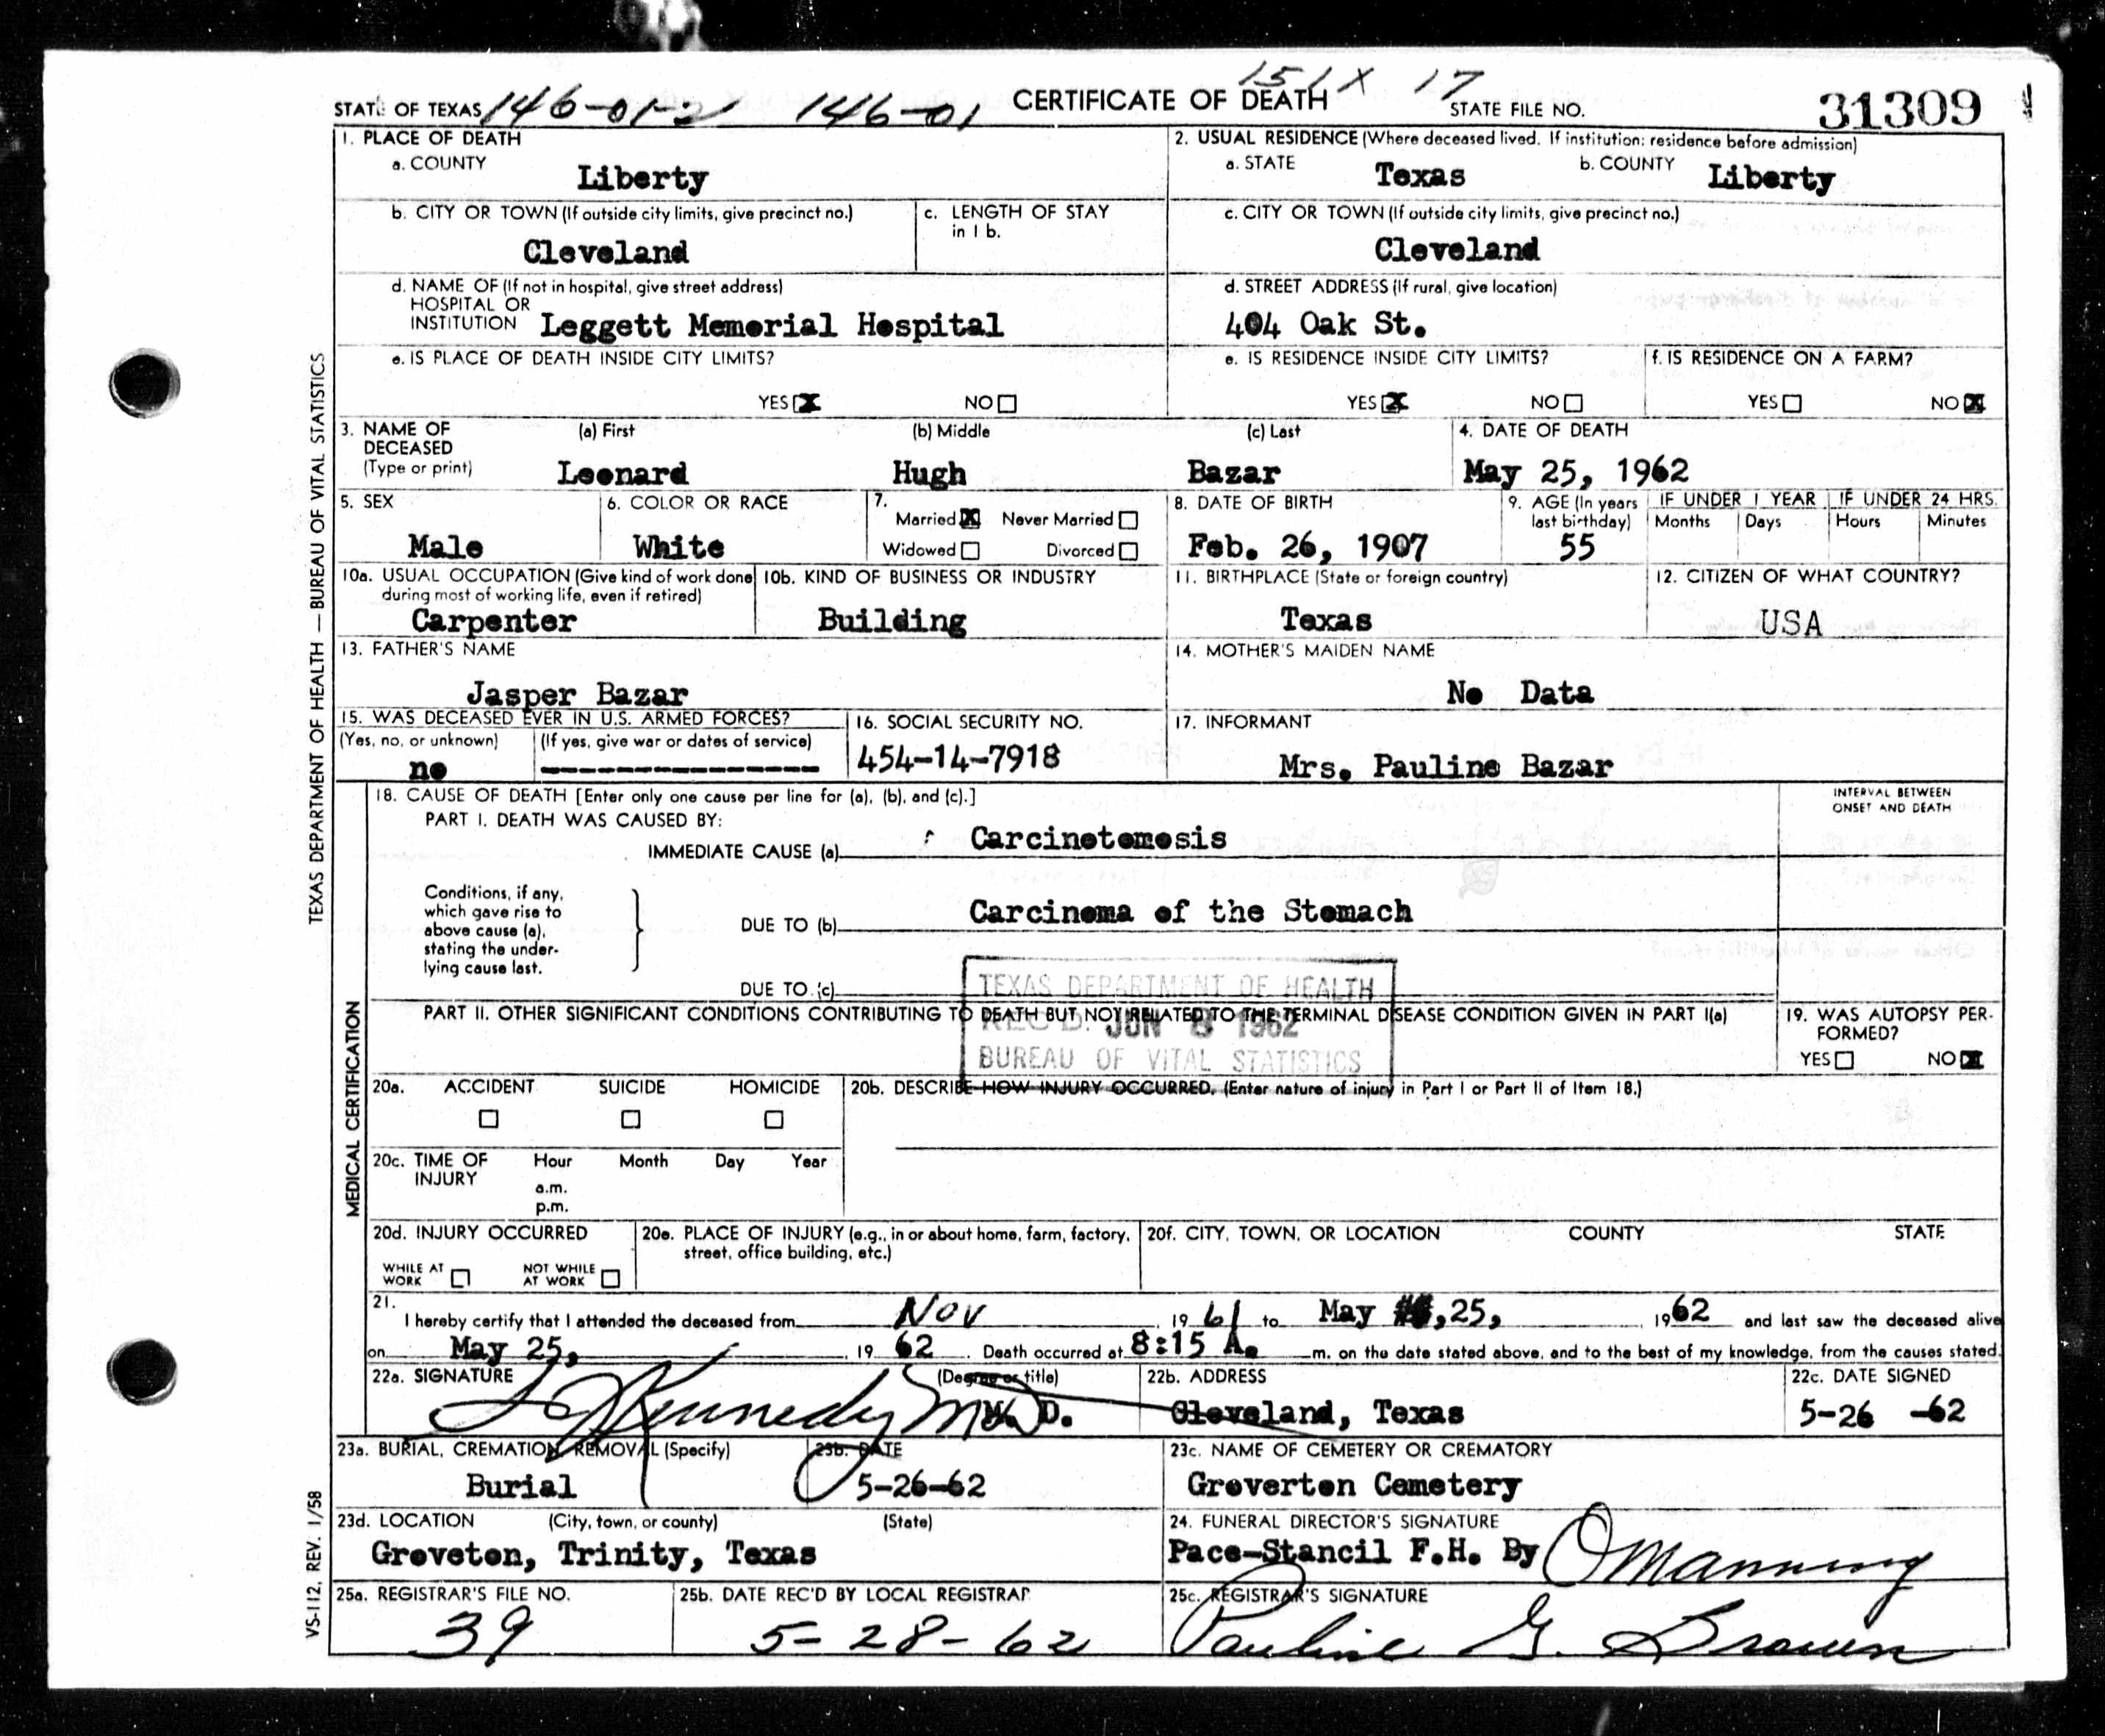 STATE OF TEXAS 146-01-2 146-01 CERTIFICATE OF DEATH 151X 17 STATE FILE NO. 31309
1. PLACE OF DEATH
a. COUNTY
Liberty
2. USUAL RESIDENCE (Where deceased lived. If institution: residence before admission)
a. STATE Texas b. COUNTY Liberty
b. CITY OR TOWN (If outside city limits, give precinct no.)
Cleveland
c. LENGTH OF STAY
in 1 b.
c. CITY OR TOWN (If outside city limits, give precinct no.)
Cleveland
d. NAME OF (If not in hospital, give street address)
HOSPITAL OR
INSTITUTION Leggett Memorial Hospital
d. STREET ADDRESS (If rural, give location)
404 Oak St.
e. IS PLACE OF DEATH INSIDE CITY LIMITS?
YES X NO
e. IS RESIDENCE INSIDE CITY LIMITS?
YES X NO
f. IS RESIDENCE ON A FARM?
YES NO X
3. NAME OF
DECEASED
(Type or print)
(a) First (b) Middle (c) Last
Leonard Hugh Bazar
4. DATE OF DEATH
May 25, 1962
5. SEX
Male
6. COLOR OR RACE
White
7.
Married X Never Married
Widowed Divorced
8. DATE OF BIRTH
Feb. 26, 1907
9. AGE (In years
last birthday)
55
IF UNDER 1 YEAR
Months Days
IF UNDER 24 HRS.
Hours Minutes
10a. USUAL OCCUPATION (Give kind of work done
during most of working life, even if retired)
Carpenter
10b. KIND OF BUSINESS OR INDUSTRY
Building
11. BIRTHPLACE (State or foreign country)
Texas
12. CITIZEN OF WHAT COUNTRY?
USA
13. FATHER'S NAME
Jasper Bazar
14. MOTHER'S MAIDEN NAME
No Data
15. WAS DECEASED EVER IN U.S. ARMED FORCES?
(Yes, no, or unknown) (If yes, give war or dates of service)
no ----------------
16. SOCIAL SECURITY NO.
454-14-7918
17. INFORMANT
Mrs. Pauline Bazar
18. CAUSE OF DEATH [Enter only one cause per line for (a), (b), and (c).]
PART I. DEATH WAS CAUSED BY:
IMMEDIATE CAUSE (a) Carcinotomosis
INTERVAL BETWEEN
ONSET AND DEATH
Conditions, if any,
which gave rise to
above cause (a),
stating the under-
lying cause last.
DUE TO (b) Carcinoma of the Stomach
DUE TO (c)
TEXAS DEPARTMENT OF HEALTH
REC'D. JUN 8 1962
BUREAU OF VITAL STATISTICS
PART II. OTHER SIGNIFICANT CONDITIONS CONTRIBUTING TO DEATH BUT NOT RELATED TO THE TERMINAL DISEASE CONDITION GIVEN IN PART I(a)
19. WAS AUTOPSY PER-
FORMED?
YES NO X
20a. ACCIDENT SUICIDE HOMICIDE
20b. DESCRIBE HOW INJURY OCCURRED. (Enter nature of injury in Part I or Part II of Item 18.)
20c. TIME OF
INJURY
Hour Month Day Year
a.m.
p.m.
20d. INJURY OCCURRED
WHILE AT
WORK
NOT WHILE
AT WORK
20e. PLACE OF INJURY (e.g., in or about home, farm, factory,
street, office building, etc.)
20f. CITY, TOWN, OR LOCATION COUNTY STATE
21.
I hereby certify that I attended the deceased from Nov, 1961 to May 25, 1962 and last saw the deceased alive
on May 25, 1962. Death occurred at 8:15 A. m. on the date stated above, and to the best of my knowledge, from the causes stated.
22a. SIGNATURE (Degree or title)
Kennedy M.D. M. D.
22b. ADDRESS
Cleveland, Texas
22c. DATE SIGNED
5-26 -62
23a. BURIAL, CREMATION, REMOVAL (Specify)
Burial
23b. DATE
5-26-62
23c. NAME OF CEMETERY OR CREMATORY
Groverton Cemetery
23d. LOCATION (City, town, or county) (State)
Groveton, Trinity, Texas
24. FUNERAL DIRECTOR'S SIGNATURE
Pace-Stancil F.H. By O Manning
25a. REGISTRAR'S FILE NO.
39
25b. DATE REC'D BY LOCAL REGISTRAR
5-28-62
25c. REGISTRAR'S SIGNATURE
Pauline G. Brown
TEXAS DEPARTMENT OF HEALTH — BUREAU OF VITAL STATISTICS
MEDICAL CERTIFICATION
VS-112, REV. 1/58